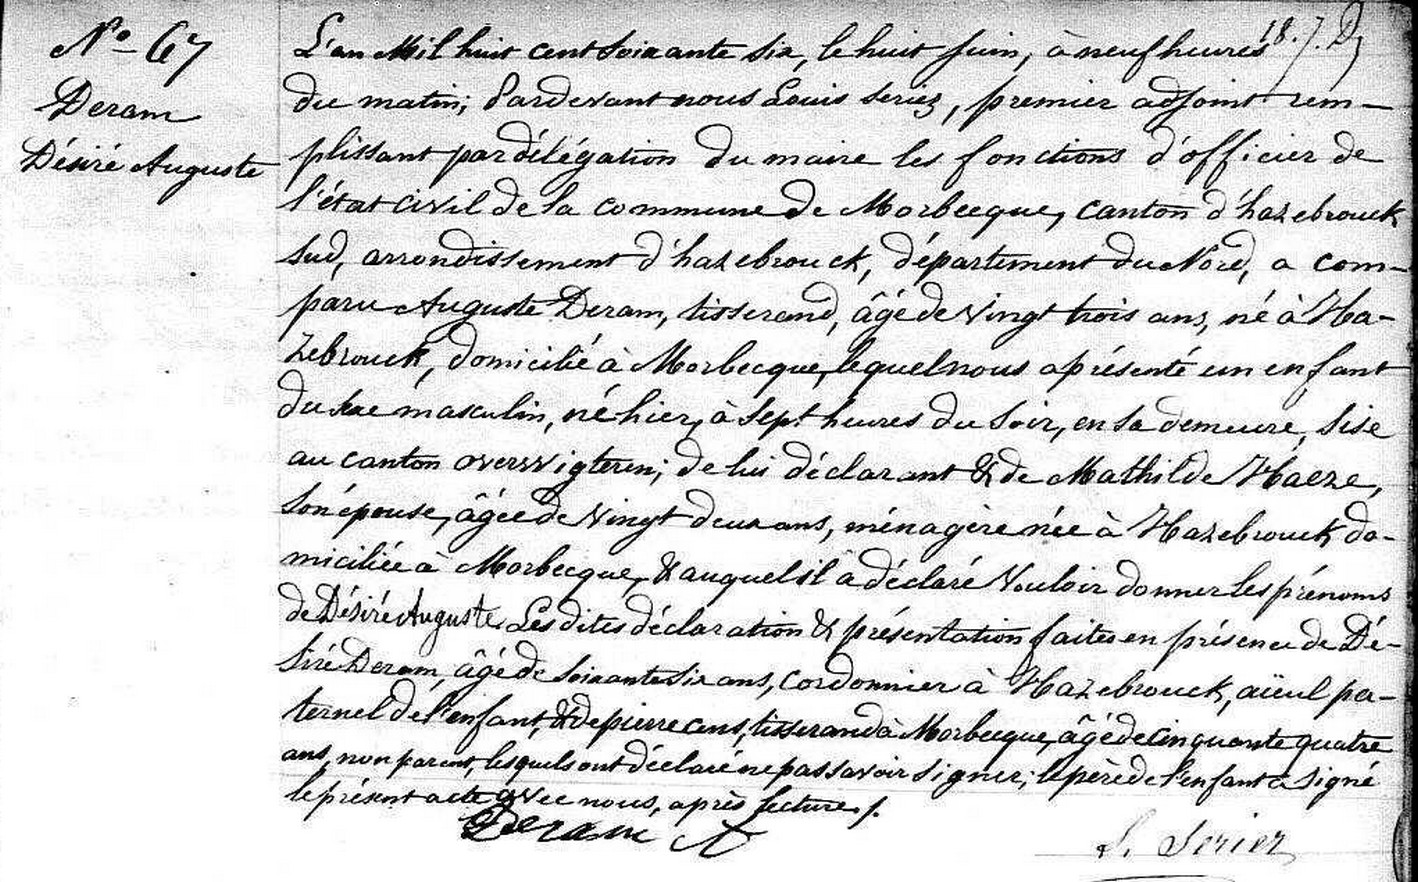 N.o 67
Deram
Désiré Auguste
18.7. D
L'an Mil huit cent soixante six, le huit juin, à neuf heures
du matin; Pardevant nous Louis Seriez, premier adjoint rem-
plissant par délégation du maire les fonctions d'officier de
l'état civil de la commune de Morbecque, canton d'hazebrouck
sud, arrondissement d'hazebrouck, département du Nord, a com-
paru Auguste Deram, tisserand, âgé de vingt trois ans, né à Ha-
zebrouck, domicilié à Morbecque, lequel nous a présenté un enfant
du sexe masculin, né hier, à sept heures du soir, en sa demeure, sise
au canton ; de lui déclarant & de Mathilde Haeze,
son épouse, âgée de vingt deux ans, ménagère née à Hazebrouck do-
miciliée à Morbecque, & auquel il a déclaré vouloir donner les prénoms
de Désiré Auguste. Les dites déclaration & présentation faites en présence de Dé-
siré Deram, âgé de soixante six ans, cordonnier à Hazebrouck, aïeul pa-
ternel de l'enfant, & de pierre cens, tisserand à Morbecque, âgé de cinquante quatre
ans, non parent, lesquels ont déclaré ne pas savoir signer; le père de l'enfant a signé
le présent acte avec nous, après lecture ./.
Deram A
L. Seriez